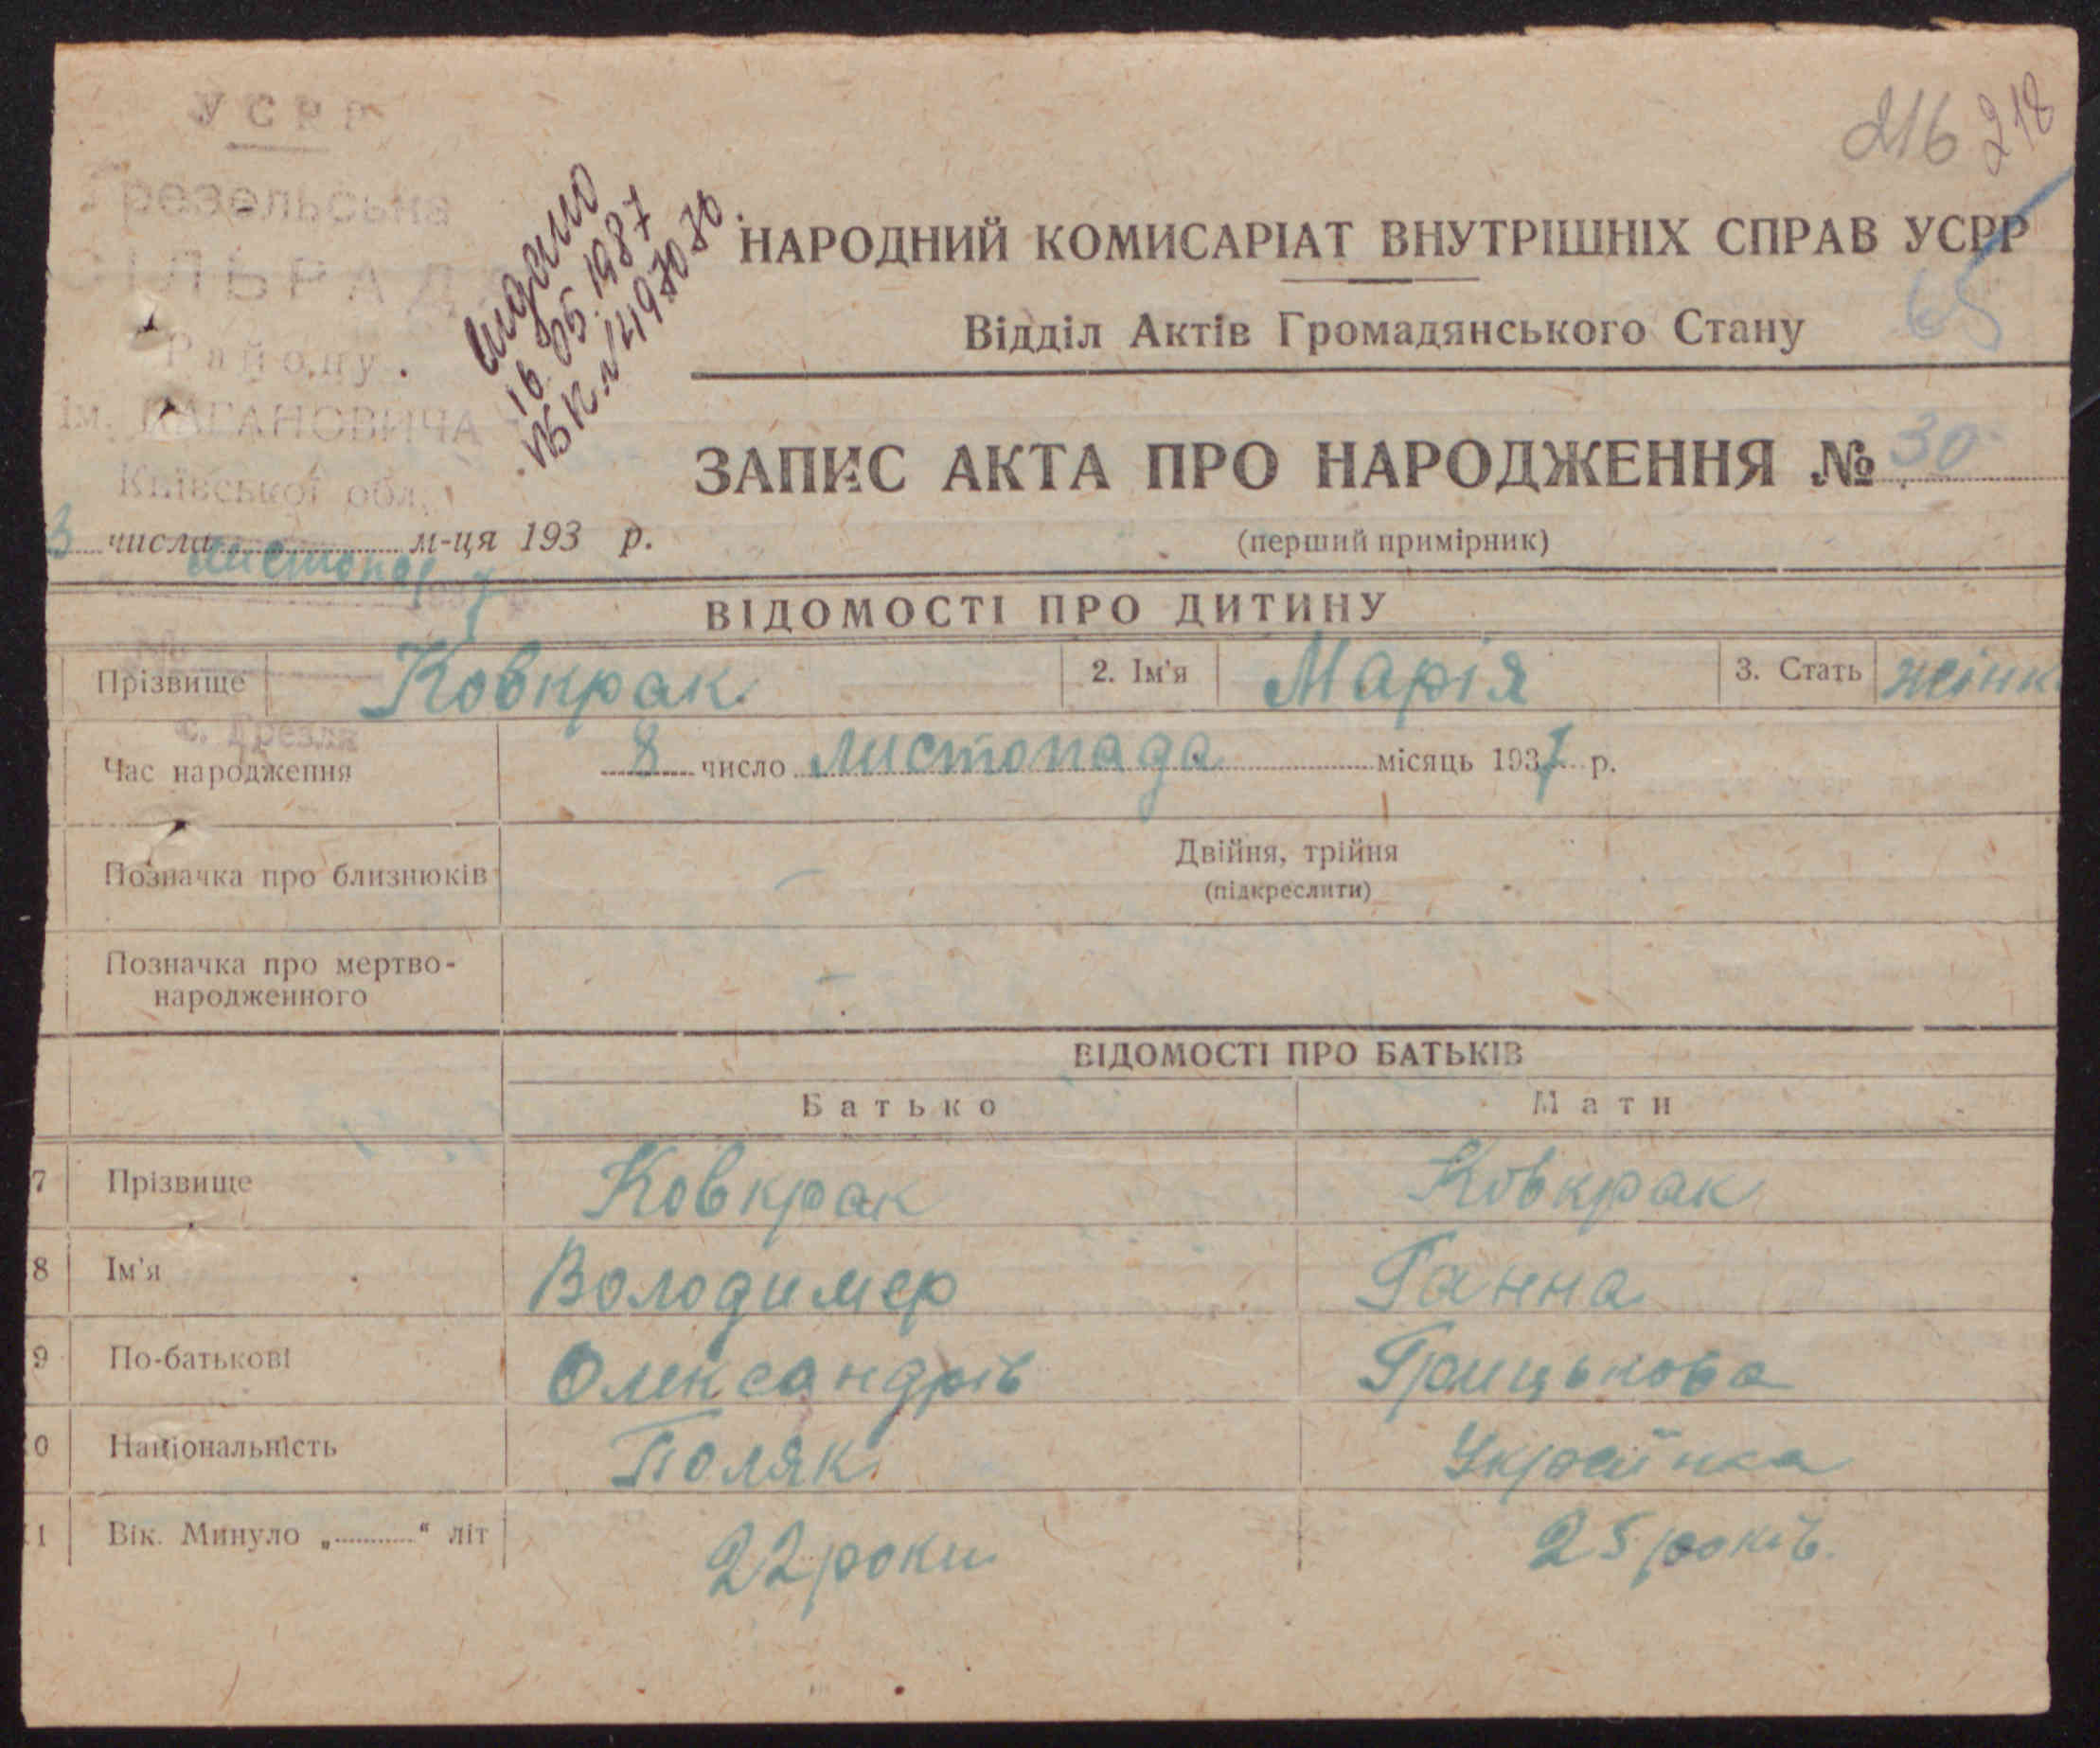 УСРР
216 218
Грезельська
СІЛЬРАДА
Району
ім. КАГАНОВИЧА
Київської обл.
видано
16.05.1987
НАРОДНИЙ КОМИСАРІАТ ВНУТРІШНІХ СПРАВ УСРР
65
Відділ Актів Громадянського Стану
ЗАПИС АКТА ПРО НАРОДЖЕННЯ № 30
(перший примірник)
3 числа листопад м-ця 1937 р.
ВІДОМОСТІ ПРО ДИТИНУ
Прізвище Ковкрак 2. Ім'я Марія 3. Стать жінк
с. Грезля
Час народження 8 число листопада місяць 1937 р.
Позначка про близнюків Двійня, трійня
(підкреслити)
Позначка про мертво-
народженного
ВІДОМОСТІ ПРО БАТЬКІВ
Батько Мати
7 Прізвище Ковкрак Ковкрак
8 Ім'я Володимер Ганна
9 По-батькові Олександрів Грицькова
0 Національність Поляк Українка
1 Вік. Минуло „..........“ літ 22 роки 25 років.